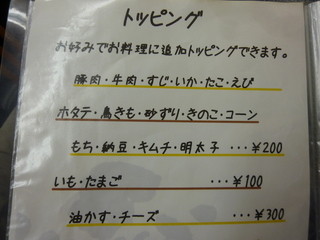 トッピング
お好みでお料理に追加トッピングできます。
豚肉・牛肉・すじ・いか・たこ・えび
ホタテ・鳥きも・砂ずり・きのこ・コーン
もち・納豆・キムチ・明太子 ・・・¥200
いも・たまご ・・・¥100
油かす・チーズ ・・・¥300